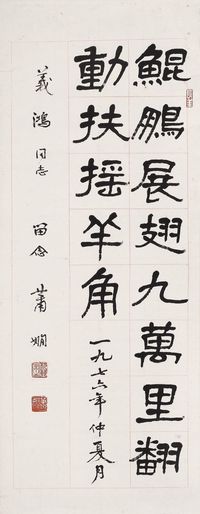 鯤鵬展翅九萬里翻
動扶摇羊角
一九七六年仲夏月
義鴻同志 留念 蕭嫻